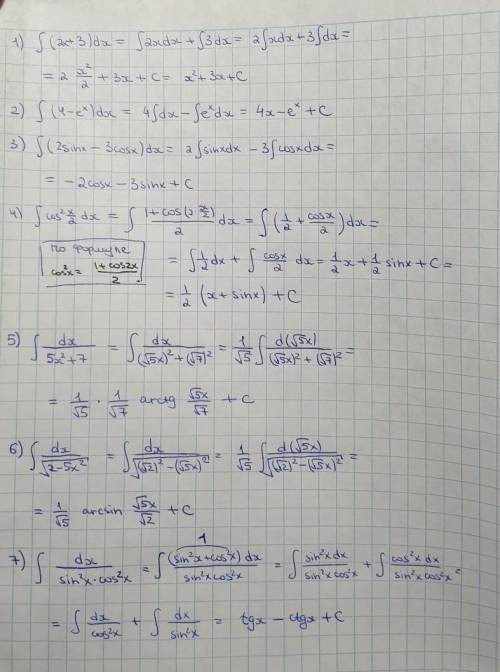 1) ∫(2x+3)dx = ∫2xdx + ∫3dx = 2∫xdx + 3∫dx =
= 2 x²/2 + 3x + C = x² + 3x + C
2) ∫(4-eˣ)dx = 4∫dx - ∫eˣdx = 4x - eˣ + C
3) ∫(2sinx - 3cosx)dx = 2∫sinxdx - 3∫cosxdx =
= -2cosx - 3sinx + C
4) ∫cos² x/2 dx = ∫ (1+cos(2·x/2))/2 dx = ∫(1/2 + cosx/2)dx =
по формуле
cos²x = (1+cos2x)/2
= ∫1/2 dx + ∫ cosx/2 dx = 1/2 x + 1/2 sinx + C =
= 1/2 (x + sinx) + C
5) ∫ dx/(5x²+7) = ∫ dx/((√5x)²+(√7)²) = 1/√5 ∫ d(√5x)/((√5x)²+(√7)²) =
= 1/√5 · 1/√7 arctg √5x/√7 + C
6) ∫ dx/√(2-5x²) = ∫ dx/√((√2)²-(√5x)²) = 1/√5 ∫ d(√5x)/√((√2)²-(√5x)²) =
= 1/√5 arcsin √5x/√2 + C
1
7) ∫ dx/(sin²x·cos²x) = ∫ (sin²x+cos²x)dx/(sin²x cos²x) = ∫ sin²x dx/(sin²x cos²x) + ∫ cos²x dx/(sin²x cos²x) =
= ∫ dx/cos²x + ∫ dx/sin²x = tgx - ctgx + C